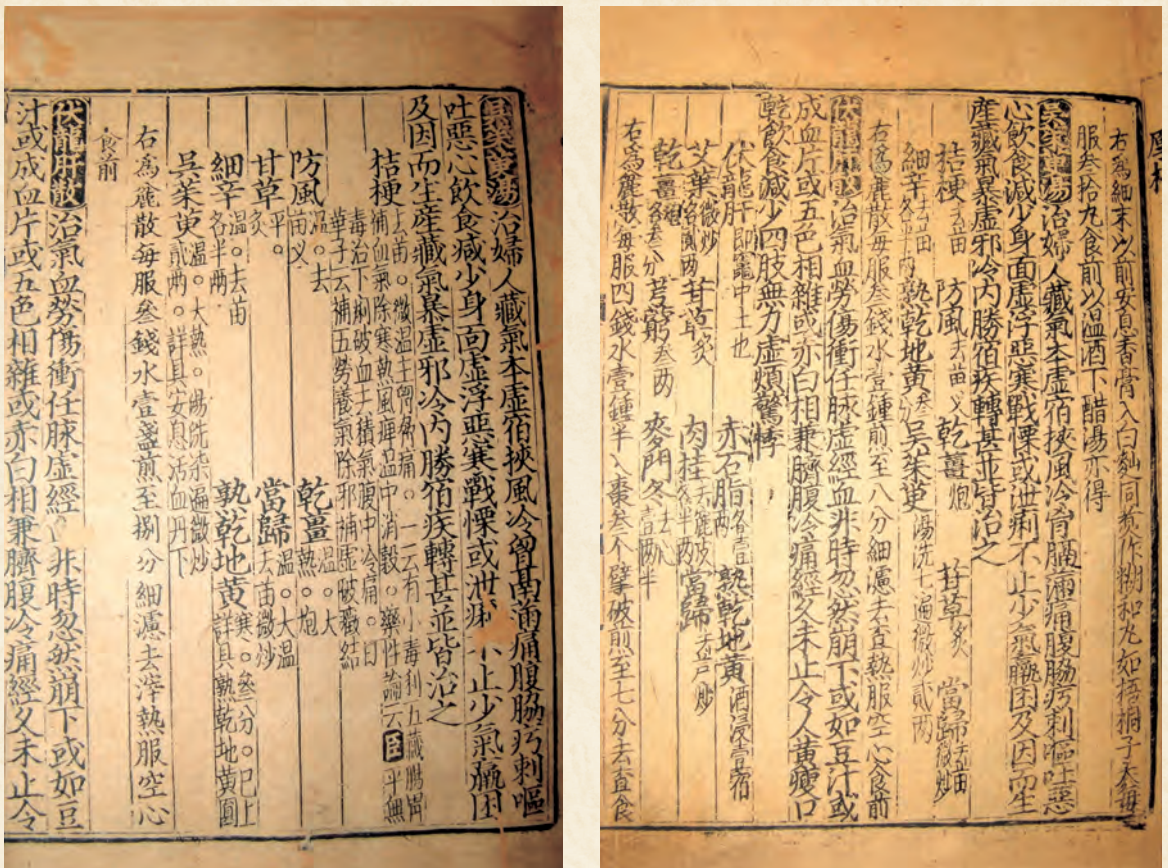 吳茱萸湯治婦人藏氣本虛宿挾風冷胷膈滿痛腹脇㽲刺嘔
吐惡心飲食減少身面虛浮惡寒戰慄或泄痢不止少氣羸困
及因而生產藏氣暴虛邪冷內勝宿疾轉甚並皆治之
桔梗 去苗。微溫主胷脇痛。一云有小毒利五藏腸胃
補血氣除寒熱風痺溫中消穀。藥性論云臣平無
毒治下痢破血去積氣腹中冷痛。日
華子云補五勞養氣除邪補虛破癥結
防風 溫。去苗乂 乾薑 溫。大熱。炮
甘草 平。炙 當歸 溫。大溫去苗微炒
細辛 溫。去苗各半兩 熟乾地黃 寒。叁分。已上詳具熟乾地黃圓
吳茱萸 溫。大熱。湯洗柒遍微炒貳兩。詳具安息活血丹下
右爲麄散每服叁錢水壹盞煎至捌分細濾去滓熱服空心
食前
伏龍肝散治氣血勞傷衝任脉虛經非時忽然崩下或如豆
汁或成血片或五色相雜或赤白相兼臍腹冷痛經久未止令
右爲細末以前安息香膏入白麵同煑作糊和丸如梧桐子大每
服叁拾丸食前以溫酒下醋湯亦得
吳茱萸湯治婦人藏氣本虛宿挾風冷胷膈滿痛腹脇㽲刺嘔吐惡
心飲食減少身面虛浮惡寒戰慄或泄痢不止少氣羸困及因而生
產藏氣暴虛邪冷內勝宿疾轉甚並皆治之
桔梗去苗 防風去苗乂 乾薑炮 甘草炙 當歸去苗微炒
細辛去苗各半兩 熟乾地黃叁分 吳茱萸湯洗七遍微炒貳兩
右爲麄散每服叁錢水壹鍾煎至八分細濾去查熱服空心食前
伏龍肝散治氣血勞傷衝任脉虛經血非時忽然崩下或如豆汁或
成血片或五色相雜或赤白相兼臍腹冷痛經久未止令人黃瘦口
乾飲食減少四肢無力虛煩驚悸
伏龍肝即竈中土也 赤石脂各壹兩 熟乾地黃酒浸壹宿
艾葉微炒各貳兩 甘草炙 肉桂去麄皮各半兩 當歸去芦炒
乾薑炮各叁分 芎藭叁兩 麥門冬去心壹兩半
右爲麄散每服四錢水壹鍾半入棗叁个擘破煎至七分去查食